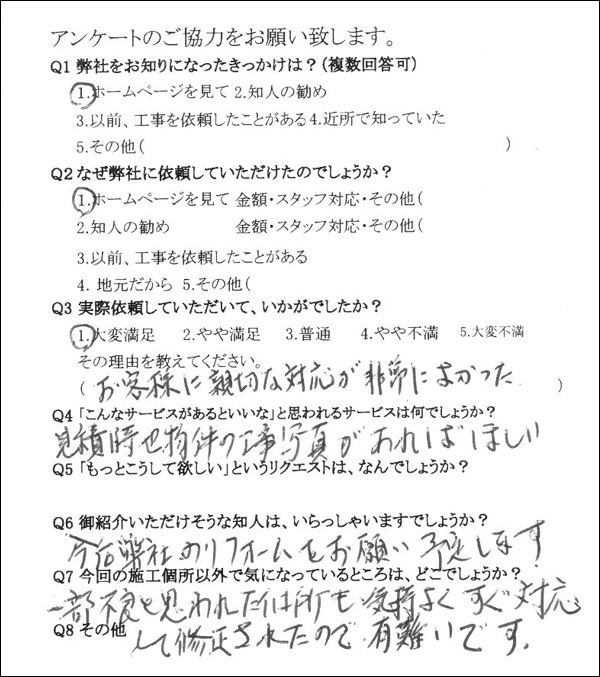 アンケートのご協力をお願い致します。
Q1 弊社をお知りになったきっかけは？（複数回答可）
1.ホームページを見て 2.知人の勧め
3.以前、工事を依頼したことがある 4.近所で知っていた
5.その他（ ）
Q2 なぜ弊社に依頼していただけたのでしょうか？
1.ホームページを見て 金額・スタッフ対応・その他（
2.知人の勧め 金額・スタッフ対応・その他（
3.以前、工事を依頼したことがある
4. 地元だから 5.その他（
Q3 実際依頼していただいて、いかがでしたか？
1.大変満足 2.やや満足 3.普通 4.やや不満 5.大変不満
その理由を教えてください。
（お客様に親切な対応が非常によかった ）
Q4 「こんなサービスがあるといいな」と思われるサービスは何でしょうか？
見積時 他物件の工事写真があればほしい
Q5 「もっとこうして欲しい」というリクエストは、なんでしょうか？
Q6 御紹介いただけそうな知人は、いらっしゃいますでしょうか？
今后弊社のリフォームをお願い予定します
Q7 今回の施工個所以外で気になっているところは、どこでしょうか？
一部不良と思われた個所も気持よくすぐ対応
Q8 その他 して修正されたので有難いです。